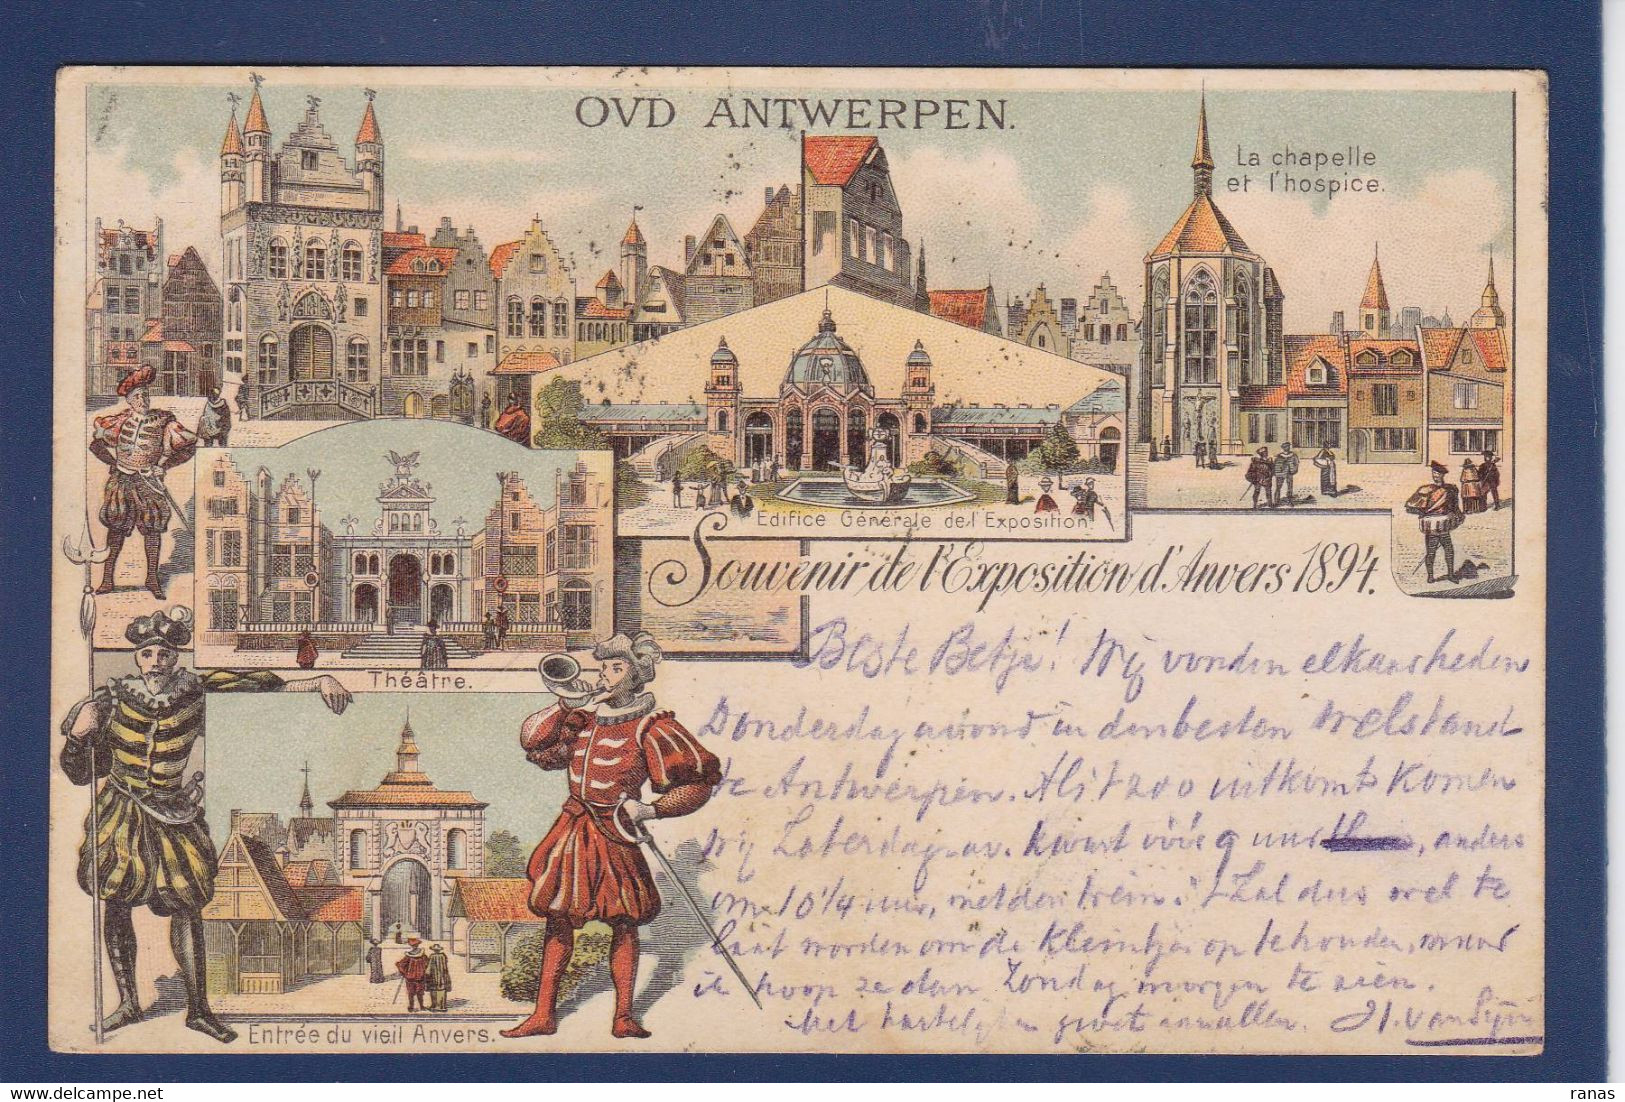 OVD ANTWERPEN.
La chapelle
et l'hospice.
Edifice Générale de l'Exposition.
Souvenir de l'Exposition d'Anvers 1894.
Théâtre.
Entrée du vieil Anvers.
Beste Betje! Wij vonden elkaar heden
Donderdag avond in den besten welstand
te Antwerpen. Als 't zoo uitkomt komen
wij Zaterdag av. kwart vóór 9 uur, anders
om 10 1/4 uur, met den trein. 't Zal dus wel te
laat worden om de kleintjes op te houden, maar
ik hoop ze dan Zondag morgen te zien.
Met hartelijken groet aan allen. H. van
ranas